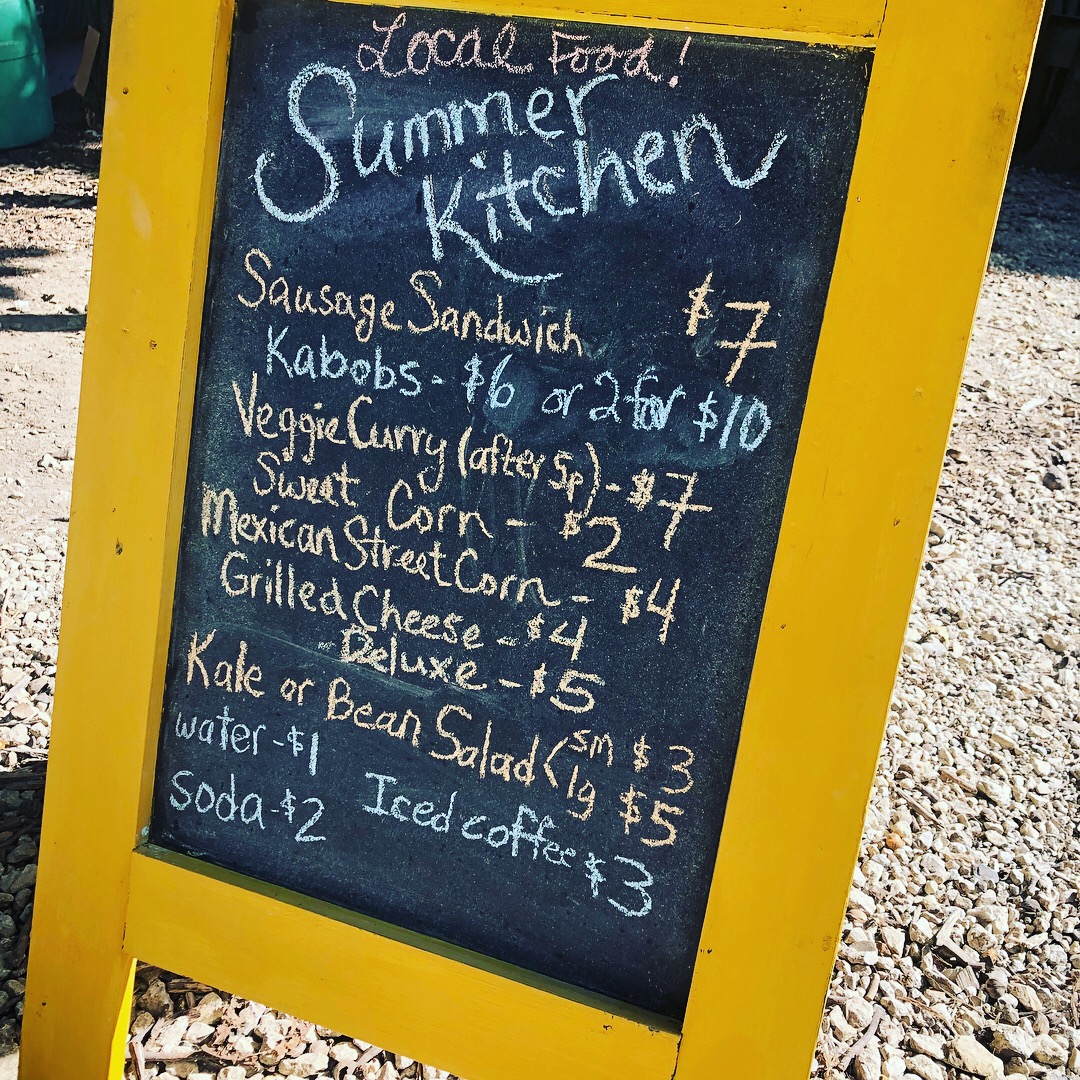 Local Food!
Summer
Kitchen
Sausage Sandwich $7
Kabobs - $6 or 2 for $10
Veggie Curry (after 5p) - $7
Sweat Corn - $2
Mexican Street Corn - $4
Grilled Cheese - $4
Deluxe - $5
Kale or Bean Salad < sm $3
lg $5
water - $1
soda - $2 Iced coffee $3